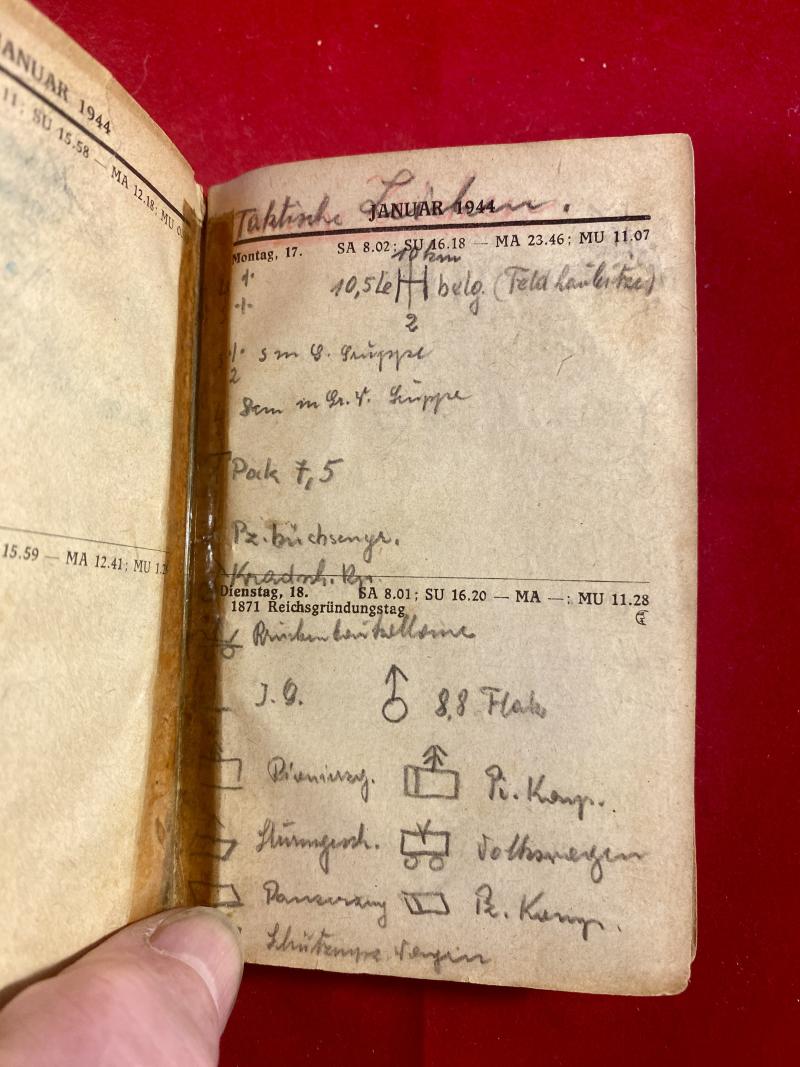 JANUAR 1944
11; SU 15.58 — MA 12.18; MU
15.59 — MA 12.41; MU 1.2
Taktische Zeichen.
JANUAR 1944
Montag, 17. SA 8.02; SU 16.18 — MA 23.46; MU 11.07
10 km
10,5 le belg. (Feldhaubitze)
2
s m G. Gruppe
2
8cm m Gr. W. Gruppe
Pak 7,5
Pz.büchsengr.
Kradsch. Kp.
Dienstag, 18. SA 8.01; SU 16.20 — MA —; MU 11.28
1871 Reichsgründungstag
Brückenbaukolonne
J.G. 8,8 Flak
Pionierzg. Pi. Komp.
Sturmgesch. Volkswagen
Panzerzug Pz. Komp.
Schützenpz. wagen